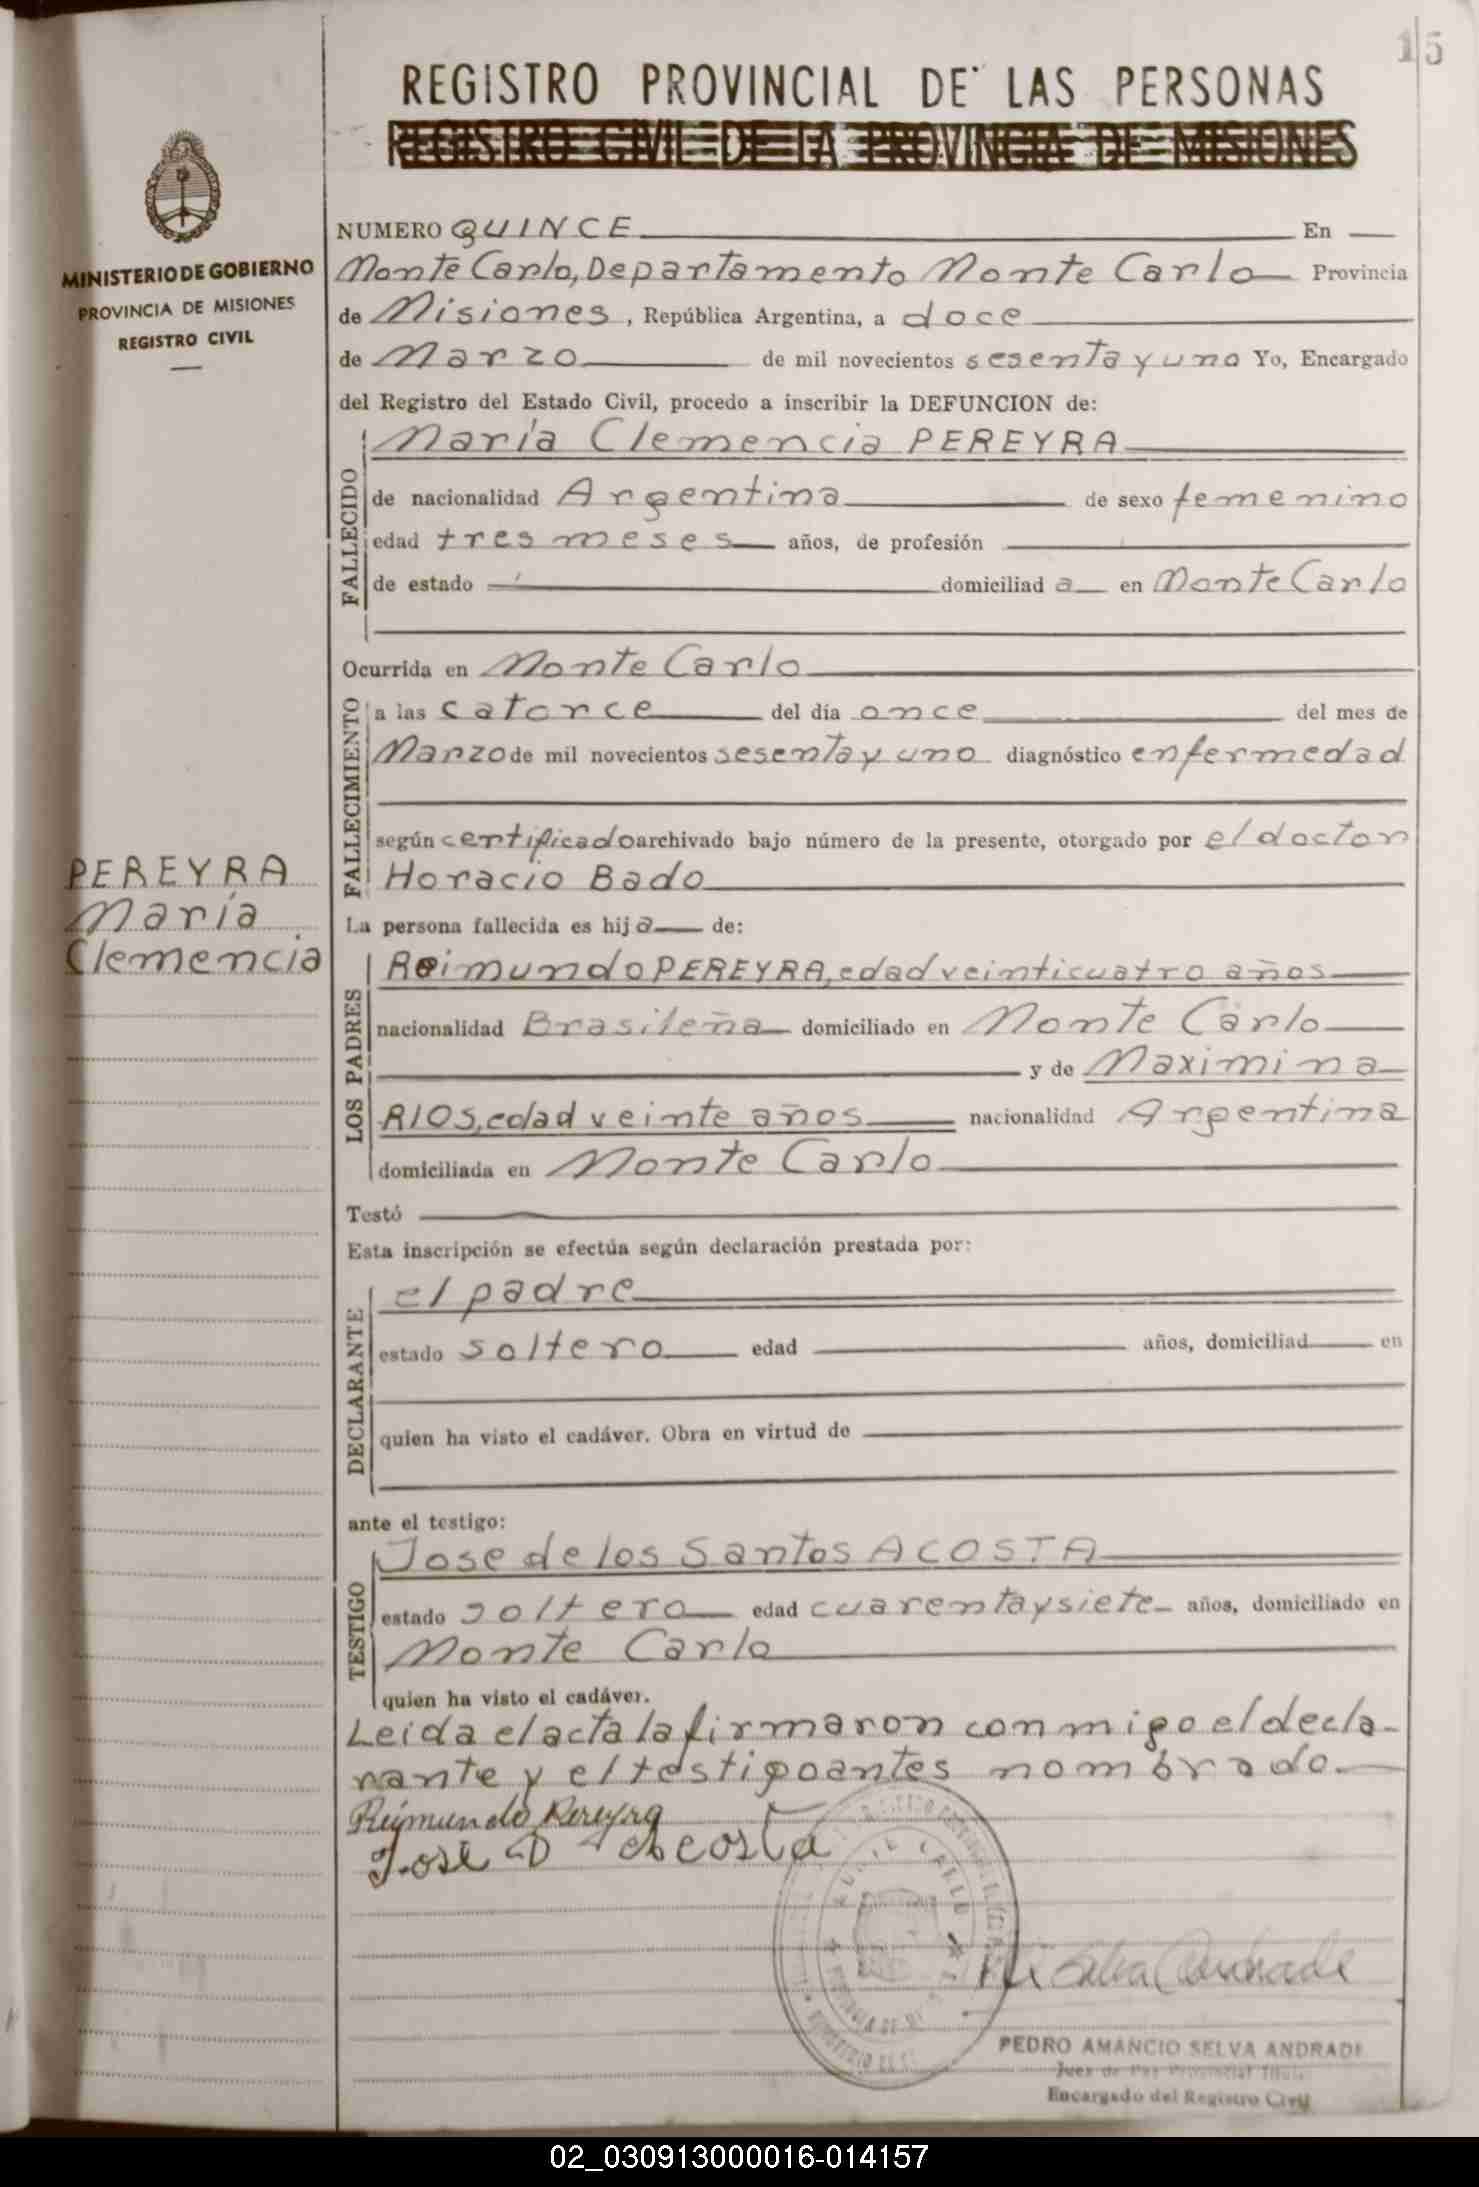 15
REGISTRO PROVINCIAL DE LAS PERSONAS
REGISTRO CIVIL DE LA PROVINCIA DE MISIONES
MINISTERIO DE GOBIERNO
PROVINCIA DE MISIONES
REGISTRO CIVIL
NUMERO QUINCE En
Monte Carlo, Departamento Monte Carlo Provincia
de Misiones, República Argentina, a doce
de Marzo de mil novecientos sesenta y uno Yo, Encargado
del Registro del Estado Civil, procedo a inscribir la DEFUNCION de:
FALLECIDO
María Clemencia PEREYRA
de nacionalidad Argentina de sexo femenino
edad tres meses años, de profesión
de estado domiciliad a en Monte Carlo
Ocurrida en Monte Carlo
FALLECIMIENTO
a las catorce del día once del mes de
Marzo de mil novecientos sesenta y uno diagnóstico enfermedad
según certificado archivado bajo número de la presente, otorgado por el doctor
Horacio Bado
PEREYRA
María
Clemencia
La persona fallecida es hij a de:
LOS PADRES
Reimundo PEREYRA, edad veinticuatro años
nacionalidad Brasileña domiciliado en Monte Carlo
y de Maximina
RIOS, edad veinte años nacionalidad Argentina
domiciliada en Monte Carlo
Testó
Esta inscripción se efectúa según declaración prestada por:
DECLARANTE
el padre
estado soltero edad años, domiciliad en
quien ha visto el cadáver. Obra en virtud de
ante el testigo:
TESTIGO
Jose de los Santos ACOSTA
estado soltero edad cuarenta y siete años, domiciliado en
Monte Carlo
quien ha visto el cadáver.
Leida el acta la firmaron conmigo el decla-
rante y el testigo antes nombrado.
Reimundo Pereyra
José D Acosta
Selva Andrade
PEDRO AMANCIO SELVA ANDRADE
Juez de Paz Provincial Titular
Encargado del Registro Civil
02_030913000016-014157